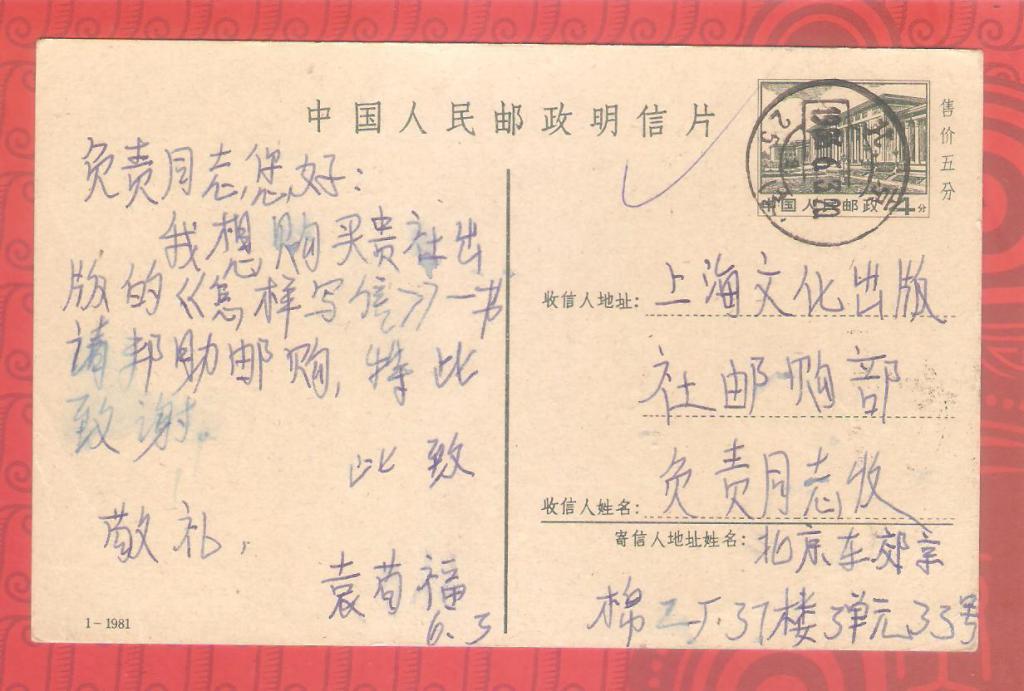 中国人民邮政明信片
售价五分
中国人民邮政 4分
负责同志,您好:
我想购买贵社出
版的《怎样写信》一书
请邦助邮购,特此
致谢。
此致
敬礼,
袁苟福
6.3
1-1981
收信人地址: 上海文化出版
社邮购部
收信人姓名: 负责同志收
寄信人地址姓名: 北京东郊京
棉二厂37楼3单元33号